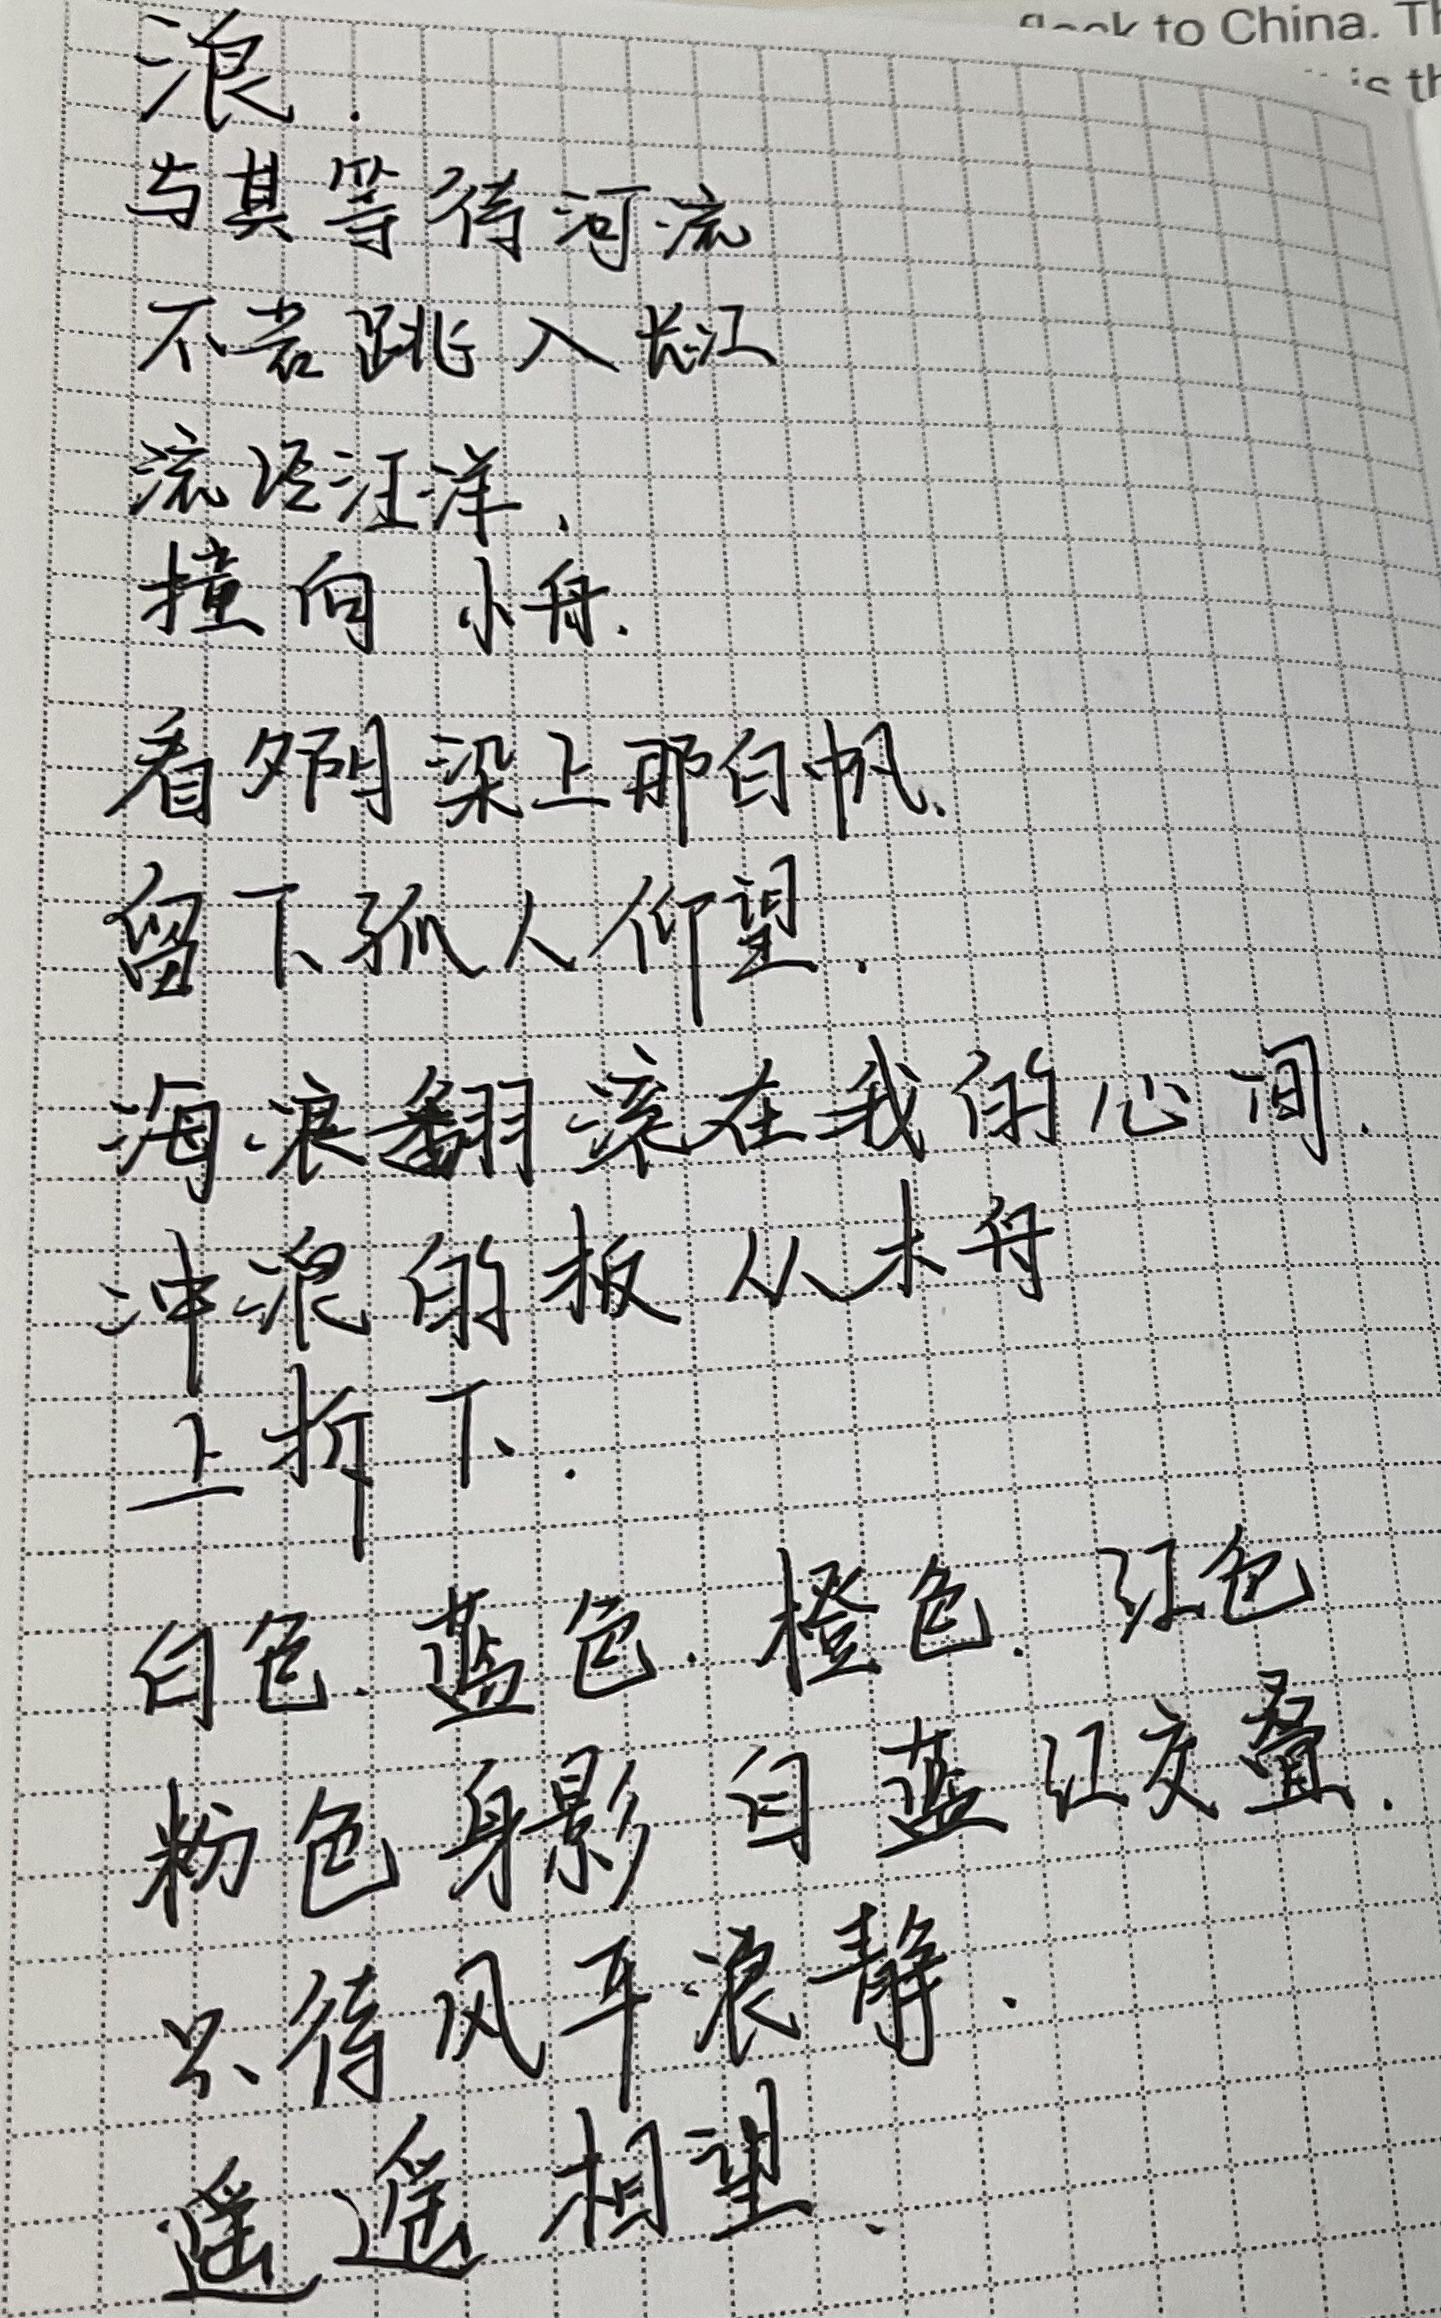 flock to China. Th
is th
浪.
与其等待河流
不若跳入长江
流经汪洋、
撞向小舟.
看夕阴染上那白帆、
留下孤人仰望.
海浪翻滚在我的心间.
冲浪的板从木舟
上折下.
白色.蓝色.橙色.红色
粉色身影白蓝红交叠.
只待风平浪静.
遥遥相望、